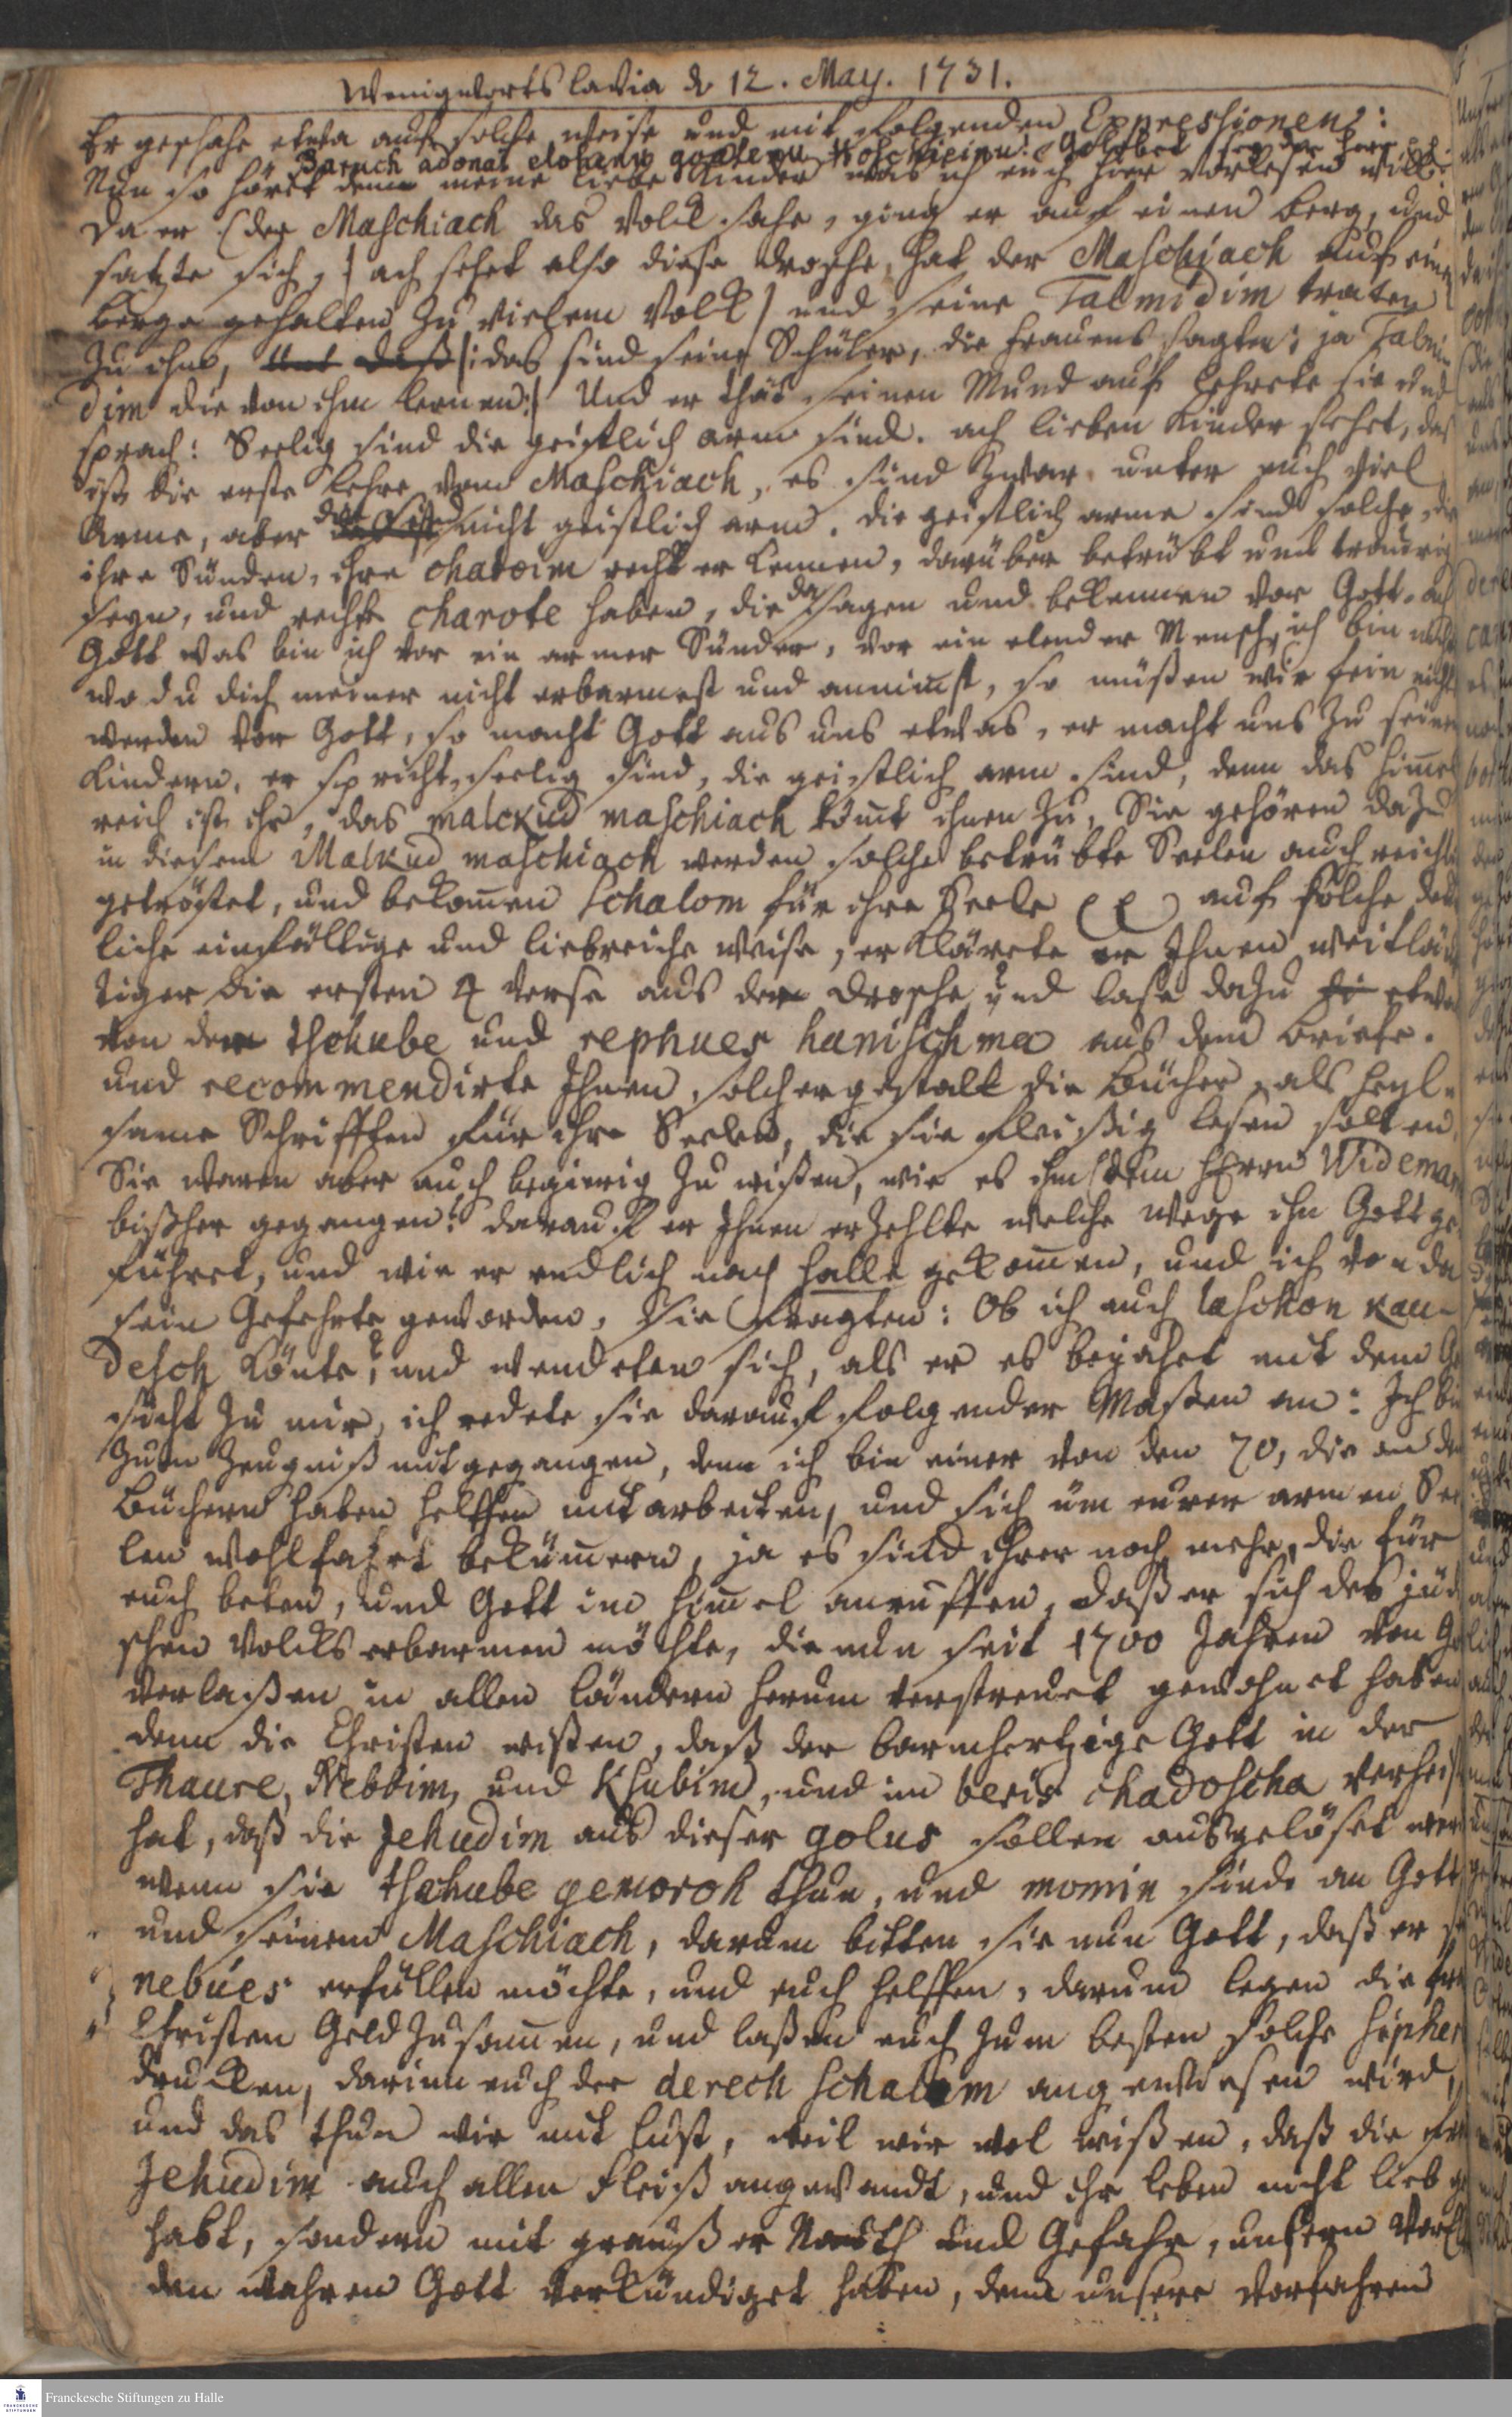 Wenigworts lavia d 12. May. 1731.
Er geschahe etwa auf solche weise und mit folgenden Expressionen:
Baruch adonai elohenu goalenu Moschieinu: Gelobet sey der Herr
Nun so höret denn meine liebe Kinder was ich euch hier vorlesen will:
Da er (der Maschiach das Volck sahe, ging er auf einen berg, und
satzte sich,) ach sehet also diese drosche, hat der Maschiach auf einen
berge gehalten zu vielem Volk) und seine Talmidim traten
zu ihm, (: das sind seine Schüler, die frauens sagten: ja Talmi
dim die von ihm lernen:) Und er thät seinen Mund auf lehrete sie und
sprach: Seelig sind die geistlich arm sind. ach lieben Kinder sehet, das
ist die erste lehre vom Maschiach, es sind zwar unter euch viel
Arme, aber nicht geistlich arm. die geistlich arme sind solche, die
ihre Sünden, ihre chatoim recht erkennen, darüber betrübt und traurig
seyn, und rechte charote haben, die da sagen und bekennen vor Gott. ach
Gott was bin ich vor ein armer Sünder, vor ein elender Mensch, ich bin nichts
wo du dich meiner nicht erbarmest und annimst, so müßen wir fein nichts
werden vor Gott, so macht Gott aus uns etwas, er macht uns zu seinen
Kindern, er spricht, seelig sind, die geistlich arm sind, denn das himmel
reich ist ihr, das malckud maschiach kömt ihnen zu, Sie gehören dazu
in diesem Malkud maschiach werden solche betrübte Seelen auch reichl
getröstet, und bekommen schalom für ihre Seele auf solche deut
liche einfältige und liebreiche weise, erklärete er Ihnen weitläuf
tiger die ersten 4 verse aus der drosche und lase dazu etwas
von der thschube und rephues hanischma aus dem briefe.
und recommendirte Ihnen solchergestalt die Bücher, als heyl-
same Schrifften für ihre Seelen, die sie fleißig lesen solten.
Sie waren aber auch begierig zu wißen, wie es ihm (dem Herrn Wideman
bißher gegangen? darauf er Ihnen erzehlte welche wege ihn Gott ge
führet, und wie er endlich nach Halle gekommen, und ich von da
sein Gefehrte geworden, sie fragten: Ob ich auch laschon kau-
desch könte, und wendeten sich, als er es bejahet mit dem Ge
sicht zu mir, ich redete sie darauf folgender Maßen an: Ich bin
zum Zeugniß mitgegangen, denn ich bin einer von den 70, die an den
Büchern haben helffen mitarbeiten, und sich um eurer armen See
len wohlfahrt bekümmern, ja es sind ihrer noch mehr, die für
euch beten, und Gott im himmel anruffen, daß er sich des jüdi
schen Volcks erbarmen möchte, die nun seit 1700 Jahren von Gott
verlaßen in allen ländern herum verstreuet gewohnet haben
denn die Christen wißen, daß der barmhertzige Gott in der
Thaure, Nebbim, und Ksubim, und im beris chadoscha verheis
hat, daß die Jehudim aus dieser golus sollen ausgelöset wer
wenn sie thschube gemoroh thun, und momin sind an Gott
und seinem Maschiach, darum bitten sie nun Gott, daß er
nebues erfüllen möchte, und euch helffen, darum legen die
Christen Geld zusammen, und laßen euch zum besten solche sipher
drucken, darinn euch der derech schalom angewiesen wird,
und das thun wir mit lust, weil wir wol wißen, daß die
Jehudim auch allen fleiß angewandt, und ihr leben nicht lieb ge
habt, sondern mit großer Noth und Gefahr, unsern
den wahren Gott verkündiget haben, denn unsere vorfahren
Franckesche Stiftungen zu Halle